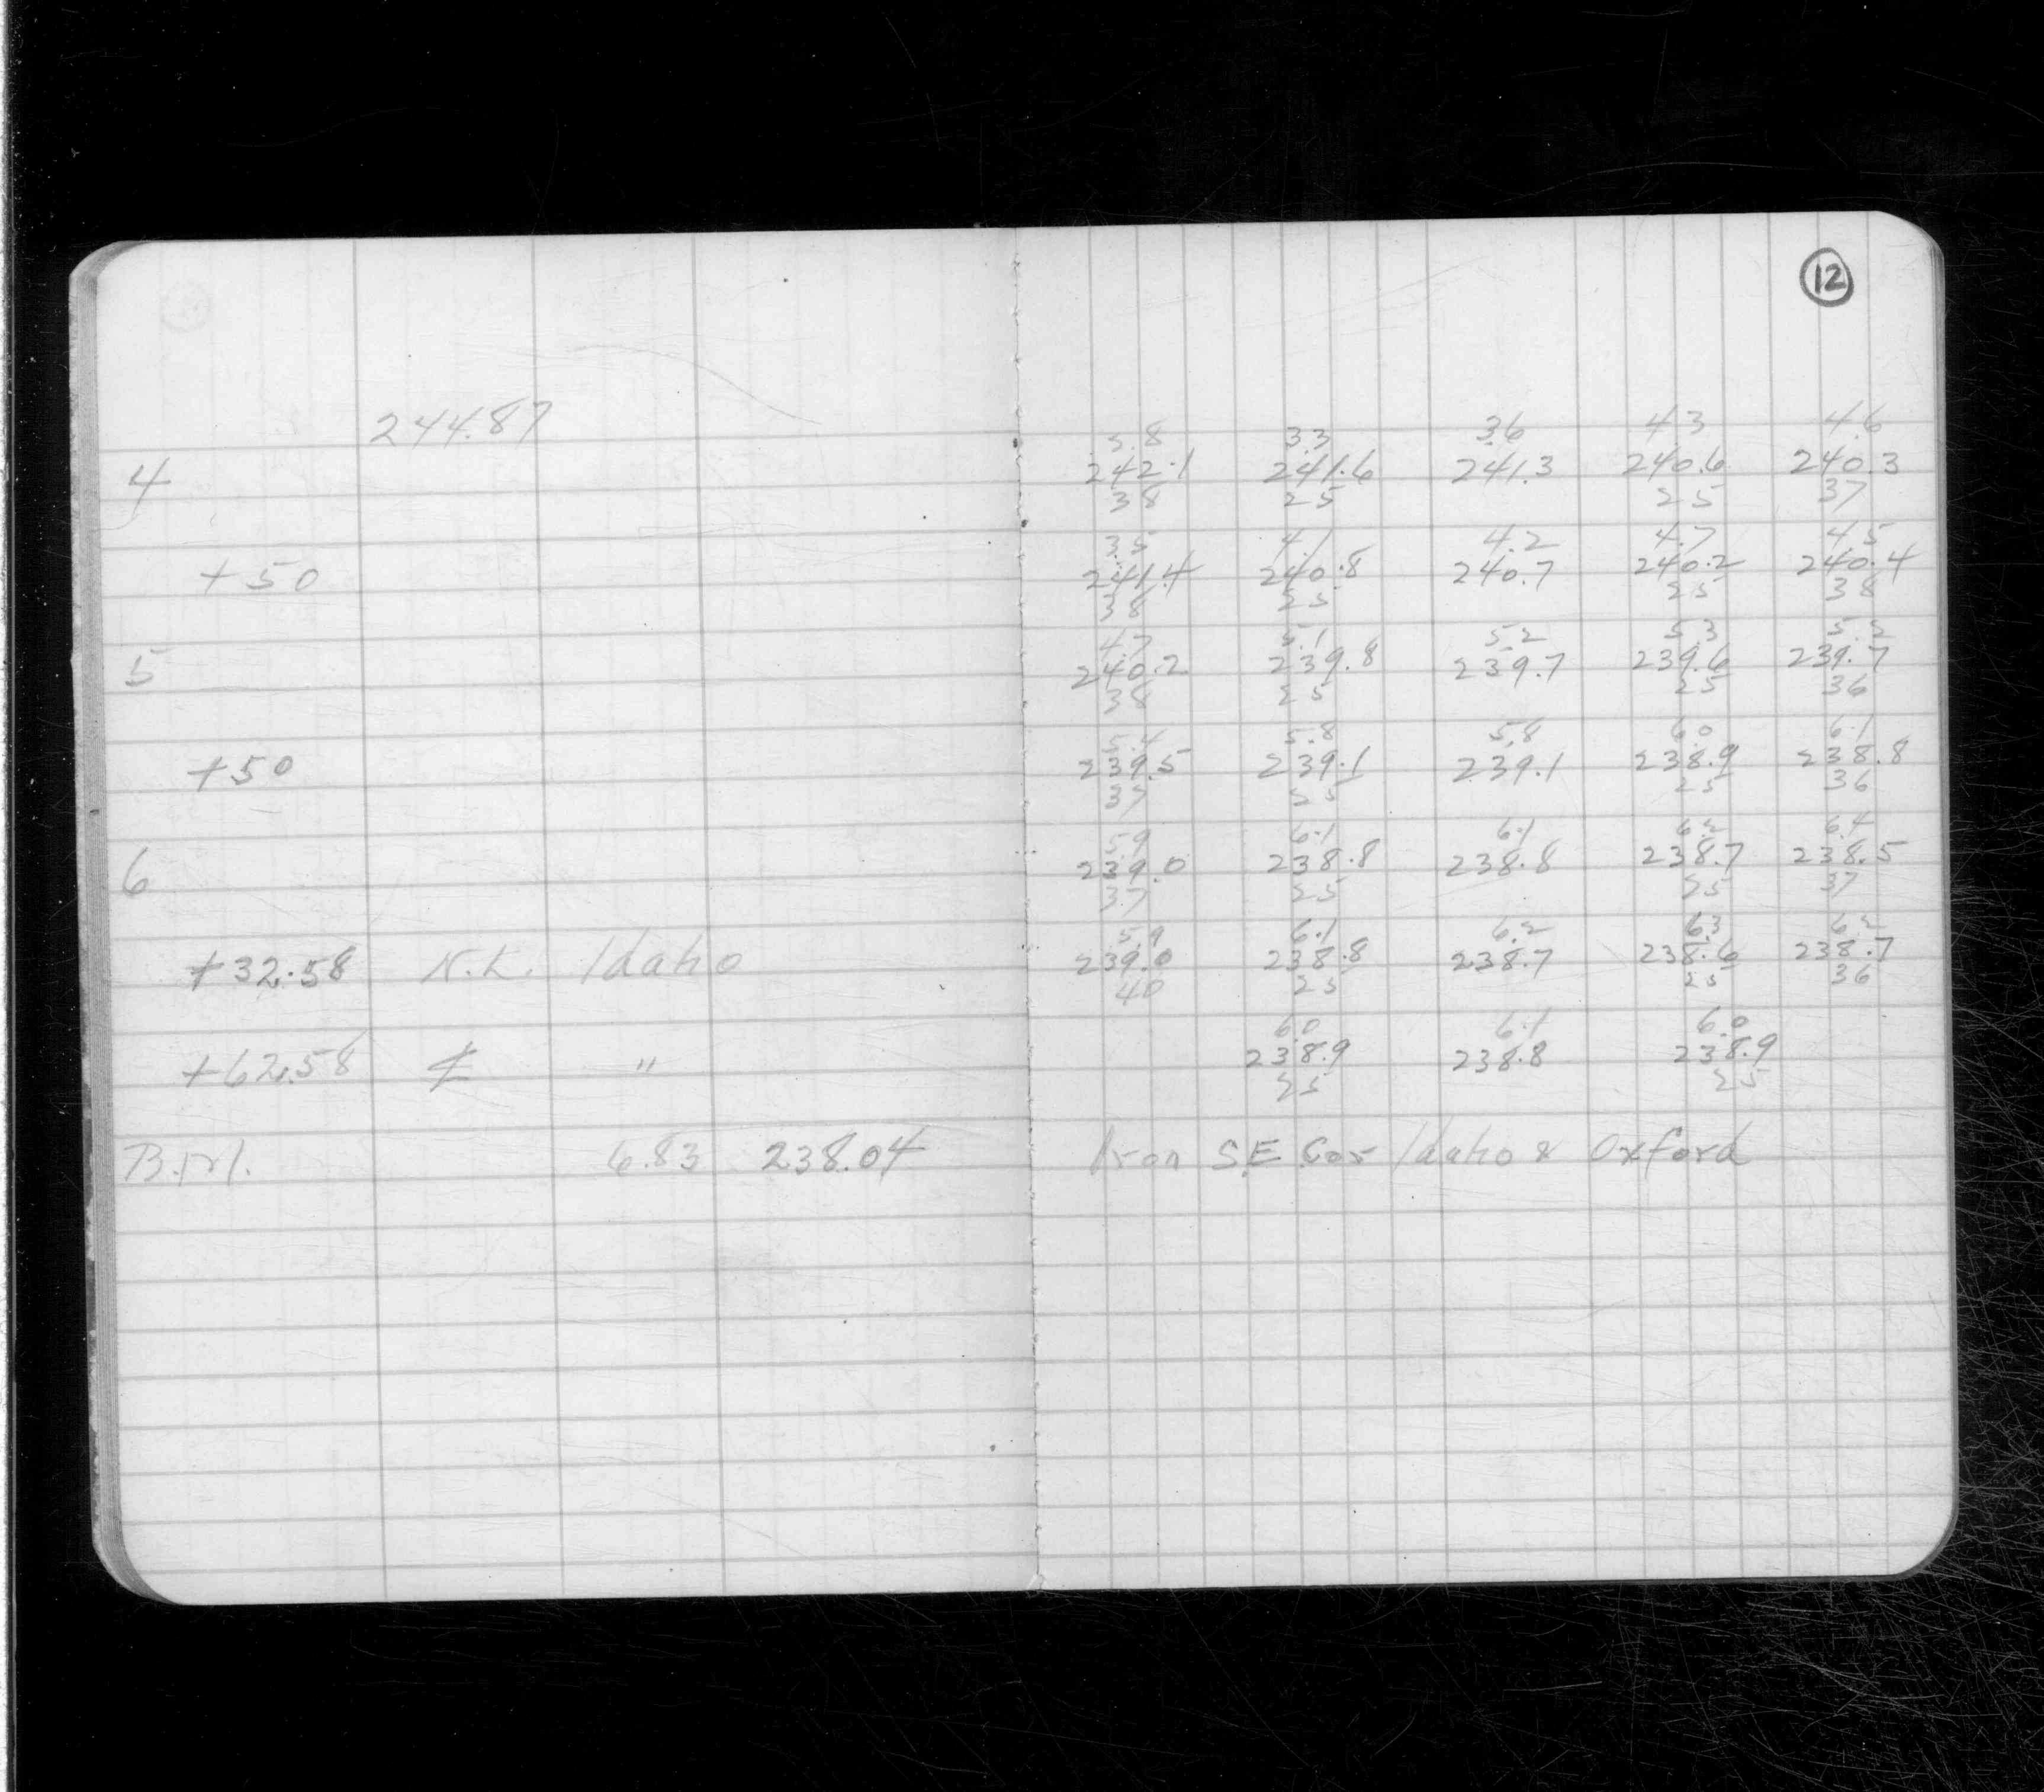 12
244.87
5.8 3.3 3.6 4.3 4.6
4 242.1 241.6 241.3 240.6 240.3
38 25 25 37
3.5 4.1 4.2 4.7 4.5
+50 241.4 240.8 240.7 240.2 240.4
38 25 25 38
4.7 5.1 5.2 5.3 5.2
5 240.2 239.8 239.7 239.6 239.7
38 25 25 36
5.4 5.8 5.8 6.0 6.1
+50 239.5 239.1 239.1 238.9 238.8
37 25 25 36
5.9 6.1 6.1 6.2 6.4
6 239.0 238.8 238.8 238.7 238.5
37 25 25 37
5.9 6.1 6.2 6.3 6.2
+32.58 N.L. Idaho 239.0 238.8 238.7 238.6 238.7
40 25 25 36
6.0 6.1 6.0
+62.58 ₵ " 238.9 238.8 238.9
25 25
B.M. 6.83 238.04 Iron S.E. Cor Idaho & Oxford